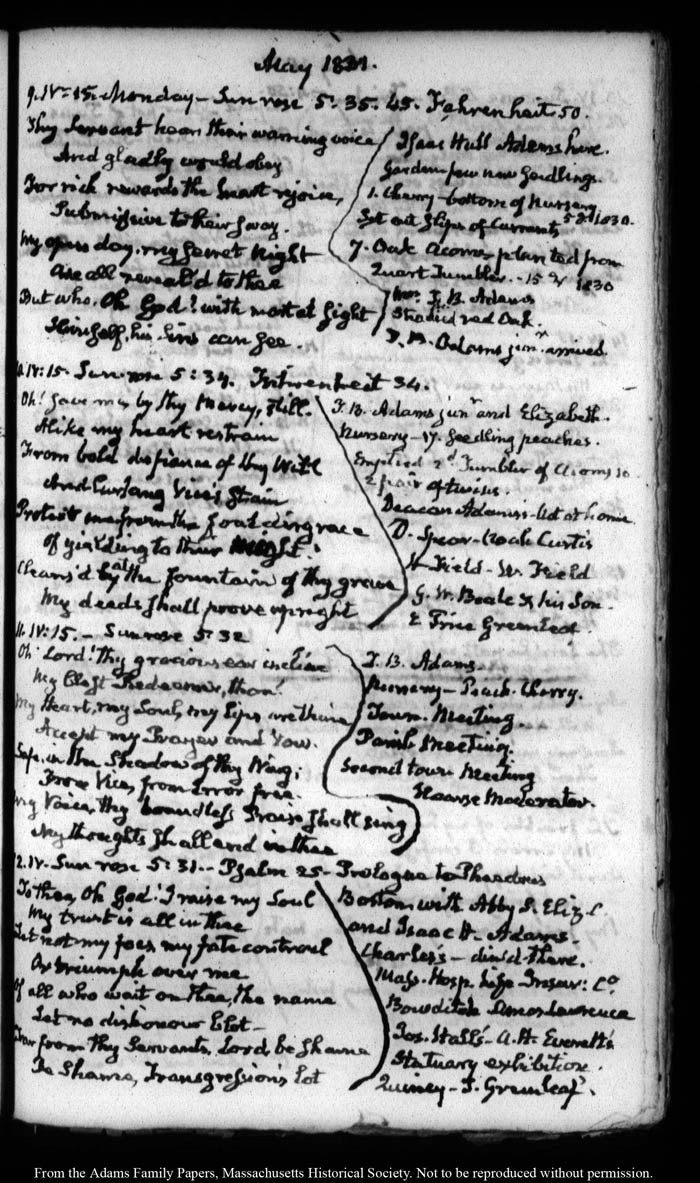 May 1831.
9. IV:15. Monday - Sun rose 5:35.45. Fahrenheit 50.
Thy Servant hears their warning voice
And gladly would obey
For rich rewards the heart rejoice,
Submissive to their sway.
My open day, my secret Night
Are all reveal'd to thee
But who, Oh God! with mortal sight
Himself, his sins can see.
Isaac Hull Adams here.
Garden few new Seedlings.
1. Cherry - bottom of Nursery
Set out Slips of Currants
7. Oak Acorns planted from
Quart Tumbler. - 1830
Mrs. T. B. Adams
Shaded red Oak.
T. B. Adams junr. arrived.
10. IV:15. Sun rose 5:34. Fahrenheit 34.
Oh! save me by thy Mercy, still.
Alike my heart restrain
From bold defiance of thy Will
And Vices strain
Protect me from the foul disgrace
Of yielding to their might.
Cleans'd at the fountain of thy grace
My deeds shall prove upright
T. B. Adams junr and Elizabeth.
Nursery - 17. Seedling peaches.
Emptied 2d Tumbler of Acorns 10
2 pair of twins.
Deacon Adams's - not at home
D. Spear - Noah Curtis
H. Field - W. Field
G. W. Beale & his Son.
E Price Greenleaf.
11. IV:15. - Sun rose 5:32
Oh! Lord! thy gracious ear incline
My blest Redeemer, thou!
My Heart, my Soul, my lips are thine
Accept my Prayer and Vow.
Safe in the Shadow of thy Wing;
From Vice, from error free
My Voice, thy boundless Praise shall sing
My thoughts shall end in thee
T. B. Adams
Nursery - Peach. Cherry.
Town Meeting.
Parish Meeting.
Second town Meeting
Moderator.
12. IV. Sun rose 5:31. - Psalm 25 - Prologue to Phaedrus
To thee, Oh God! I raise my Soul
My trust is all in thee
Let not my foes my fate controul
Or triumph over me
Of all who wait on thee, the name
Let no dishonour blot -
Far from thy Servants, Lord, be shame
Be Shame, Transgression's lot
Boston with Abby S. Eliz. C
and Isaac H. Adams.
Charles's - din'd there.
Mass. Hosp. Life Insur: Co.
Bowditch Amos Lawrence
Jos. Hall's - A. H. Everett's
Statuary exhibition.
Quincy - T. Greenleaf.
From the Adams Family Papers, Massachusetts Historical Society. Not to be reproduced without permission.